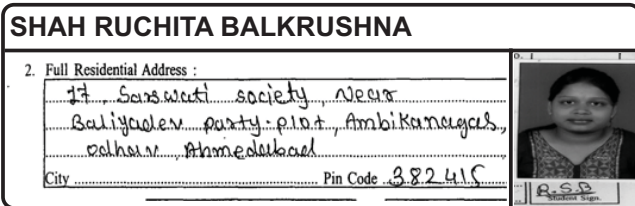 SHAH RUCHITA BALKRUSHNA
2. Full Residential Address :
17, Saraswati society, Near
Baliyadev party-plot, Ambikanagar,
odhav, Ahmedabad
City Pin Code 382415
R.S.B
Student Sign.